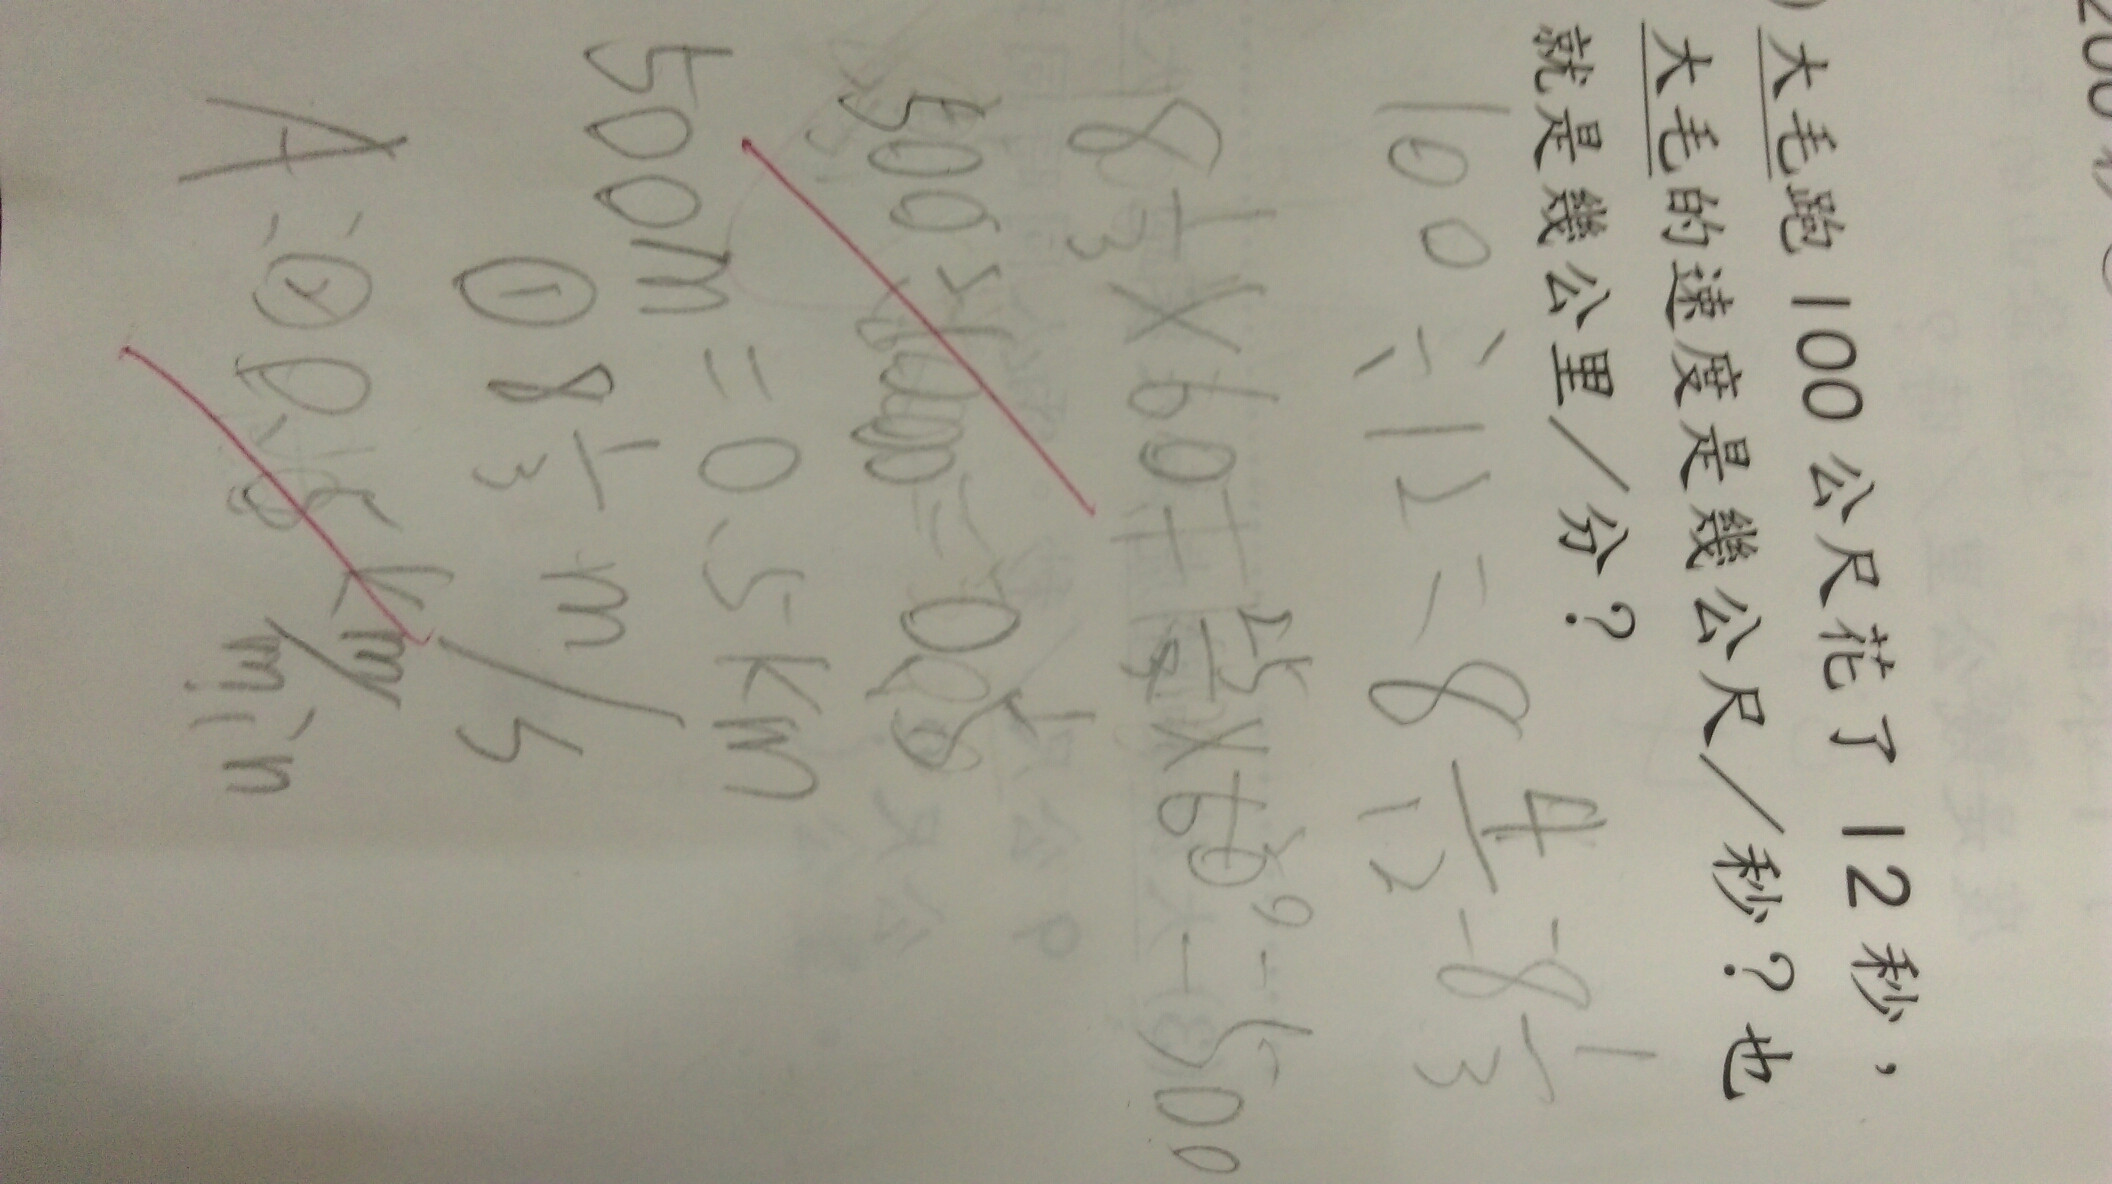 大毛跑 100 公尺花了 12 秒，
大毛的速度是幾公尺／秒？也
就是幾公里／分？
100÷12=8 4/12=8 1/3
8 1/3×60=25/3×60=500
500m=0.5km
① 8 1/3 m/s
A:② 0.5 km/min